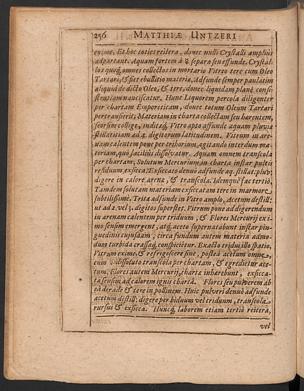 256 MATTHIÆ UNTZERI
exime. Et hoc toties reitera, donec nulli Crystalli amplius
adpareant. Aquam fortem à ☿ separa seu effunde, Crystal-
los quoq; omnes collectos in mortario Vitreo tere cum Oleo
Tartari, & fiet ebullitio materiæ, Adfunde semper paulatim
aliquid de dicto Oleo, & tere, donec liquidam planè consi-
stentiam nanciscatur. Hunc Liquorem percola diligenter
per chartam Emporeticam, donec totum Oleum Tartari
pertransierit. Materiam in charta collectam seu harentem,
seorsim collige, inditaq; Vitro apto affunde aquam pluviā
stillatitiam ad 4. digitorum latitudinem. Vitrum in are-
nam calentem pone per trihorium, agitando interdum ma-
teriam, quo facilius dissolvatur. Aquam omnem transcola
per chartam, Salutum Mercurium in charta instar pultis
residuum, exsicca. Exsiccato denuò adfunde aq. stillat. pluv.
digere in calore arenæ, & transcola, idemq; fac tertiò,
Tandem solutam materiam exsiccatam tere in marmore,
subtilissimè. Trita adfunde in Vitro amplo, acetum destill:
ut ad 2. vel 3. digitos superstet. Vitrum pone ad digerendum
in arenam calentem per triduum, & Flores Mercurij exi-
mo sensim emergent, atq; aceto supernatabunt instar pin-
guedinis cujusdam; circa fundum autem materia admo-
dum turbida crassaq; conspicietur. Exacto tridui illo spatio,
Vitrum exime & refrigescere sine, postea acetum omne,
cum dissolutis transcola per chartam, & egredietur ace-
tum, Flores autem Mercurij, charta inhærebunt, exsicca-
ta sensim ad calorem ignis charta. Flores seu pulverem ab
eâ derade & tere in pollinem. Huic pulveri denuò adfunde
acetum destill: digere per biduum vel triduum, transcola
rursus & exsicca. Huncq; laborem etiam tertiò reitera,
vel